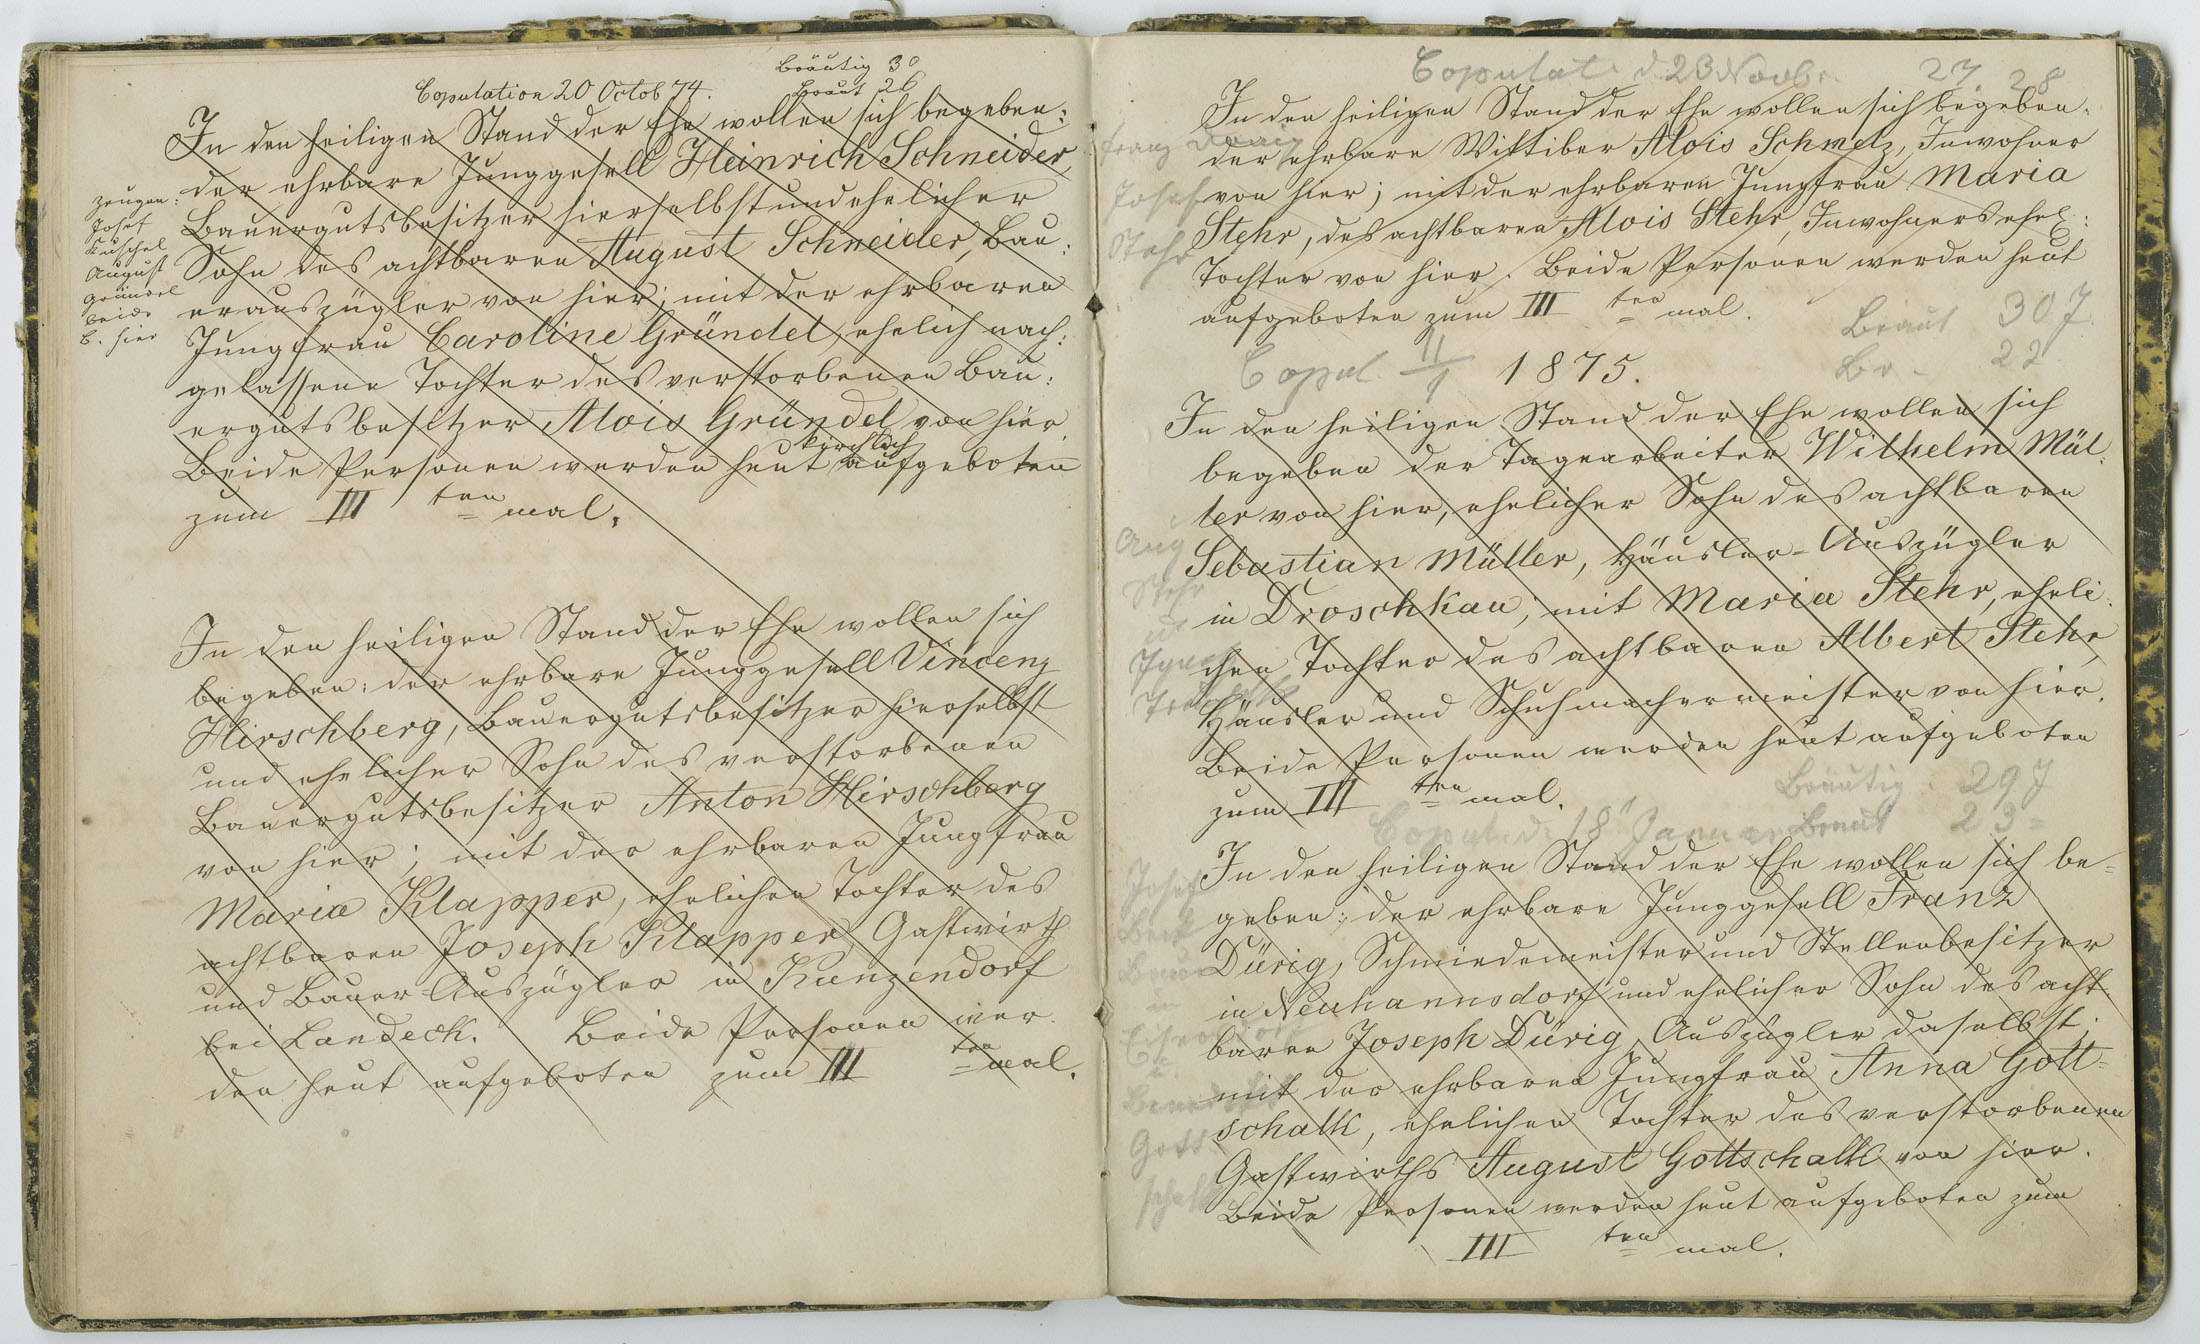 Bräutig 30
Copulation 20 Octob 74. Braut 26
In den heiligen Stand der Ehe wollen sich begeben:
der ehrbare Junggesell Heinrich Schneider,
Bauergutsbesitzer hierselbst und ehelicher
Sohn des achtbaren August Schneider, Bau:
erauszügler von hier; mit der ehrbaren
Jungfrau Caroline Gründel, ehelich nach:
gelassene Tochter des verstorbenen Bau:
ergutsbesitzer Alois Gründel von hier.
Beide Personen werden heut kirchlich aufgeboten
zum III ten mal.
Zeugen:
Josef
Kuschel
August
Gründel
beide
v. hier
In den heiligen Stand der Ehe wollen sich
begeben: der ehrbare Junggesell Vincenz
Hirschberg, Bauergutsbesitzer hierselbst
und ehelicher Sohn des verstorbenen
Bauergutsbesitzer Anton Hirschberg
von hier; mit der ehrbaren Jungfrau
Maria Klapper, ehelichen Tochter des
achtbaren Joseph Klapper, Gastwirth
und Bauer-Auszügler in Kunzendorf
bei Landeck. Beide Personen wer
den heut aufgeboten zum III ten mal.
Copulat d 23 Novbr 27. 28
In den heiligen Stand der Ehe wollen sich begeben:
der ehrbare Wittiber Alois Schmelz, Inwohner
von hier; mit der ehrbaren Jungfrau Maria
Stehr, des achtbaren Alois Stehr, Inwohners ehel:
Tochter von hier. Beide Personen werden heut
aufgeboten zum III ten mal.
Franz
Josef
Stehr
Braut 30 J.
Copul 11/1 1875. Br - 22
In den heiligen Stand der Ehe wollen sich
begeben der Tagearbeiter Wilhelm Mül:
ler von hier, ehelicher Sohn des achtbaren
Sebastian Müller, Häusler-Auszügler
in Droschkau; mit Maria Stehr, eheli:
chen Tochter des achtbaren Albert Stehr,
Häusler und Schuhmachermeister von hier.
Beide Personen werden heut aufgeboten
zum III ten mal.
Aug
Stehr
Bräutig. 29 J
Copul. d. 18 Januar Braut 23 =
In den heiligen Stand der Ehe wollen sich be=
geben: der ehrbare Junggesell Franz
Dürig, Schmiedemeister und Stellenbesitzer
in Neuhannsdorf und ehelicher Sohn des acht:
baren Joseph Dürig, Auszügler daselbst;
mit der ehrbaren Jungfrau Anna Gott=
schalk, ehelichen Tochter des verstorbenen
Gastwirths August Gottschalk von hier.
Beide Personen werden heut aufgeboten zum
III ten mal.
Josef
Gott
schalk